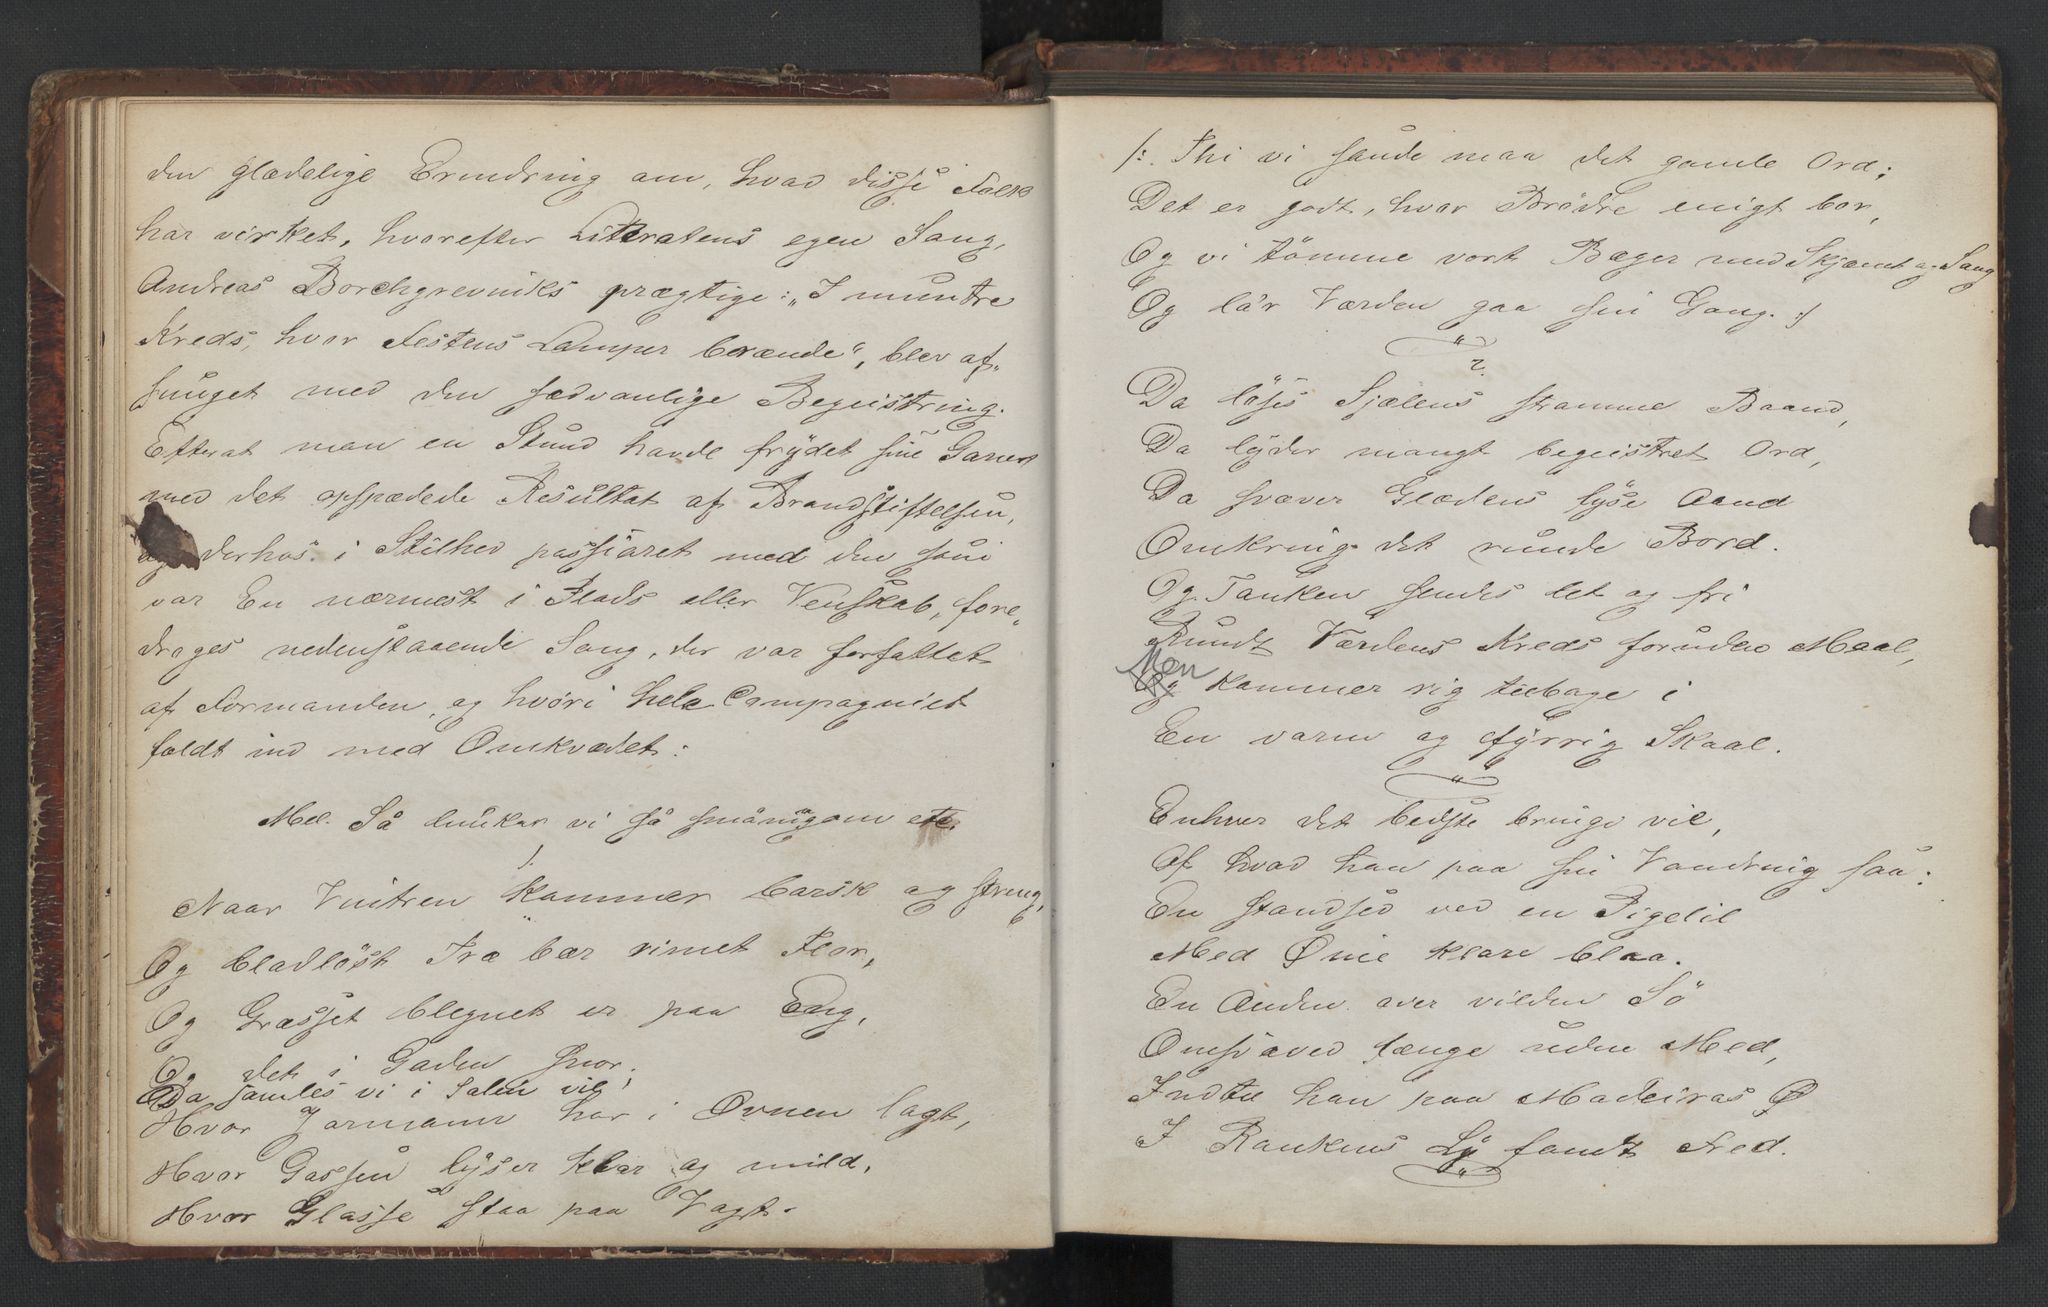 den glædelige Erindring om, hvad disse Folk
har virket, hvorefter Litteratens egen Sang,
Andreas Borchgrevinks prægtige: „I muntre
Kreds, hvor Festens Lamper brænde", blev af-
sunget med den sædvanlige Begeistring.
Efterat man en Stund havde frydet sine Ganer
med det opspædede Resultat af Brandstiftelsen,
og derhos i Stilhed passiaret med den som
var En nærmest i Plads eller Venskab, fore-
droges nedenstaaende Sang, der var forfattet
af Formanden, og hvori hele Compagniet
faldt ind med Omkvædet:
Mel. Så lunkar vi så småningom etc.
1.
Naar Vintren kommer barsk og streng,
Og bladløst Træ bær rimet Flor,
Og Græsset blegnet er paa Eng,
Og det i Gaden snor;
Da samles vi i Salen vild,
Hvor Jormann har i Ovnen lagt,
Hvor Gassen lyser klar og mild,
Hvor Glasse staa paa Vagt.
/: Thi vi sande maa det gamle Ord;
Det er godt, hvor Brødre enigt bor,
Og vi tömme vort Bæger med Skjæmt og Sang
Og la'r Verden gaa sin Gang. :/
2.
Da löses Sjælens stramme Baand,
Da lyder mangt begeistret Ord,
Da svæver Glædens lyse Aand
Omkring det runde Bord.
Og Tanken sendes let og fri
Rundt Verdens Kreds foruden Maal,
Men
Og kommer rig tilbage i
En varm og fyrrig Skaal.
Enhver det bedste bringe vil,
Af hvad han paa sin Vandring saa:
En standsed ved en Pigelil
Med Øine klare blaa.
En Anden over vilden Sö
Omsvæved længe uden Med,
Indtil han paa Madeiras Ø
I Rankens Ly fandt Fred.